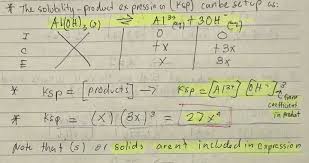 * The solubility-product expression (Ksp) can be setup as:
Al(OH)₃(s) ⇌ Al³⁺(aq) + 3OH⁻(aq)
I 0 0
C +x +3x
E x 3x
* Ksp = [products] → Ksp = [Al³⁺][OH⁻]³ from
coefficient
in product
* Ksp = (x)(3x)³ = 27x⁴
Note that (s) or solids aren't included in expression